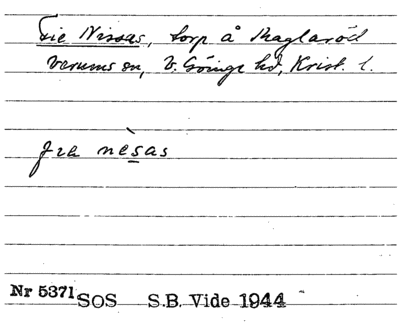 Fie Nissas, torp å Maglaröd
Verums sn, V. Göinge hd, Krist. l.
fɪa nèsas
Nr 5371 SOS S.B. Vide 1944